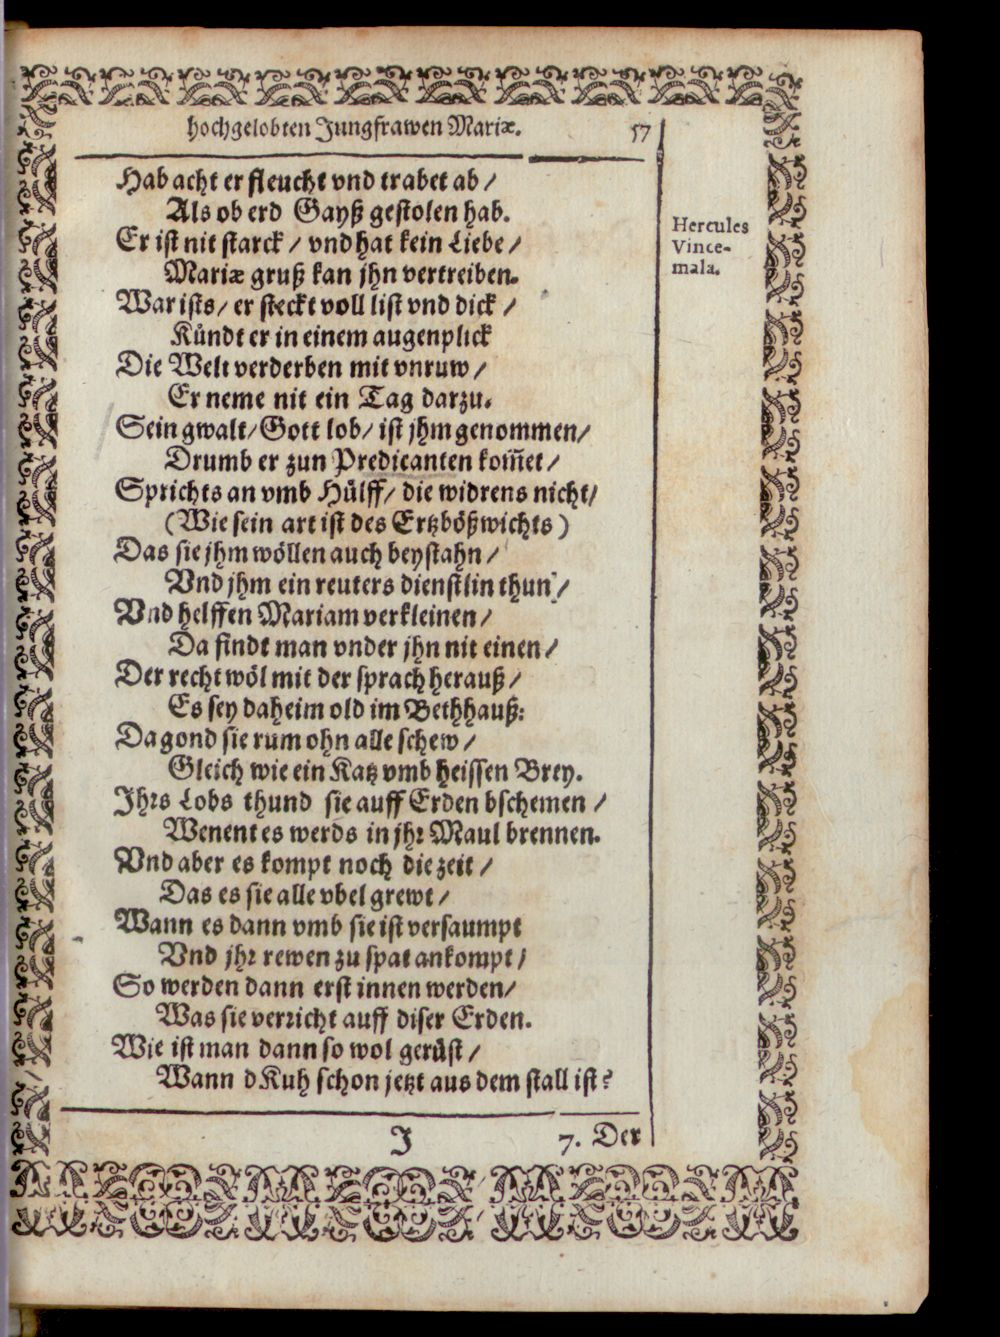 hochgelobten Jungfrawen Mariæ. 57
Hab acht er fleucht vnd trabet ab /
Als ob erd Gayß gestolen hab.
Er ist nit starck / vnd hat kein Liebe /
Mariæ gruß kan jhn vertreiben.
War ists / er steckt voll list vnd dick /
Kündt er in einem augenplick
Die Welt verderben mit vnruw /
Er neme nit ein Tag darzu.
Sein gwalt / Gott lob / ist jhm genommen /
Drumb er zun Predicanten kom̃et /
Sprichts an vmb Hülff / die widrens nicht /
(Wie sein art ist des Ertzbößwichts)
Das sie jhm wöllen auch beystahn /
Vnd jhm ein reuters dienstlin thun /
Vnd helffen Mariam verkleinen /
Da findt man vnder jhn nit einen /
Der recht wöl mit der sprach herauß /
Es sey daheim old im Bethhauß:
Da gond sie rum ohn alle schew /
Gleich wie ein Katz vmb heissen Brey.
Jhrs Lobs thund sie auff Erden bschemen /
Wenent es werds in jhr Maul brennen.
Vnd aber es kompt noch die zeit /
Das es sie alle vbel grewt /
Wann es dann vmb sie ist versaumpt
Vnd jhr rewen zu spat ankompt /
So werden dann erst innen werden /
Was sie verricht auff diser Erden.
Wie ist man dann so wol gerüst /
Wann d Kuh schon jetzt aus dem stall ist?
J 7. Der
Hercules
Vince-
mala.